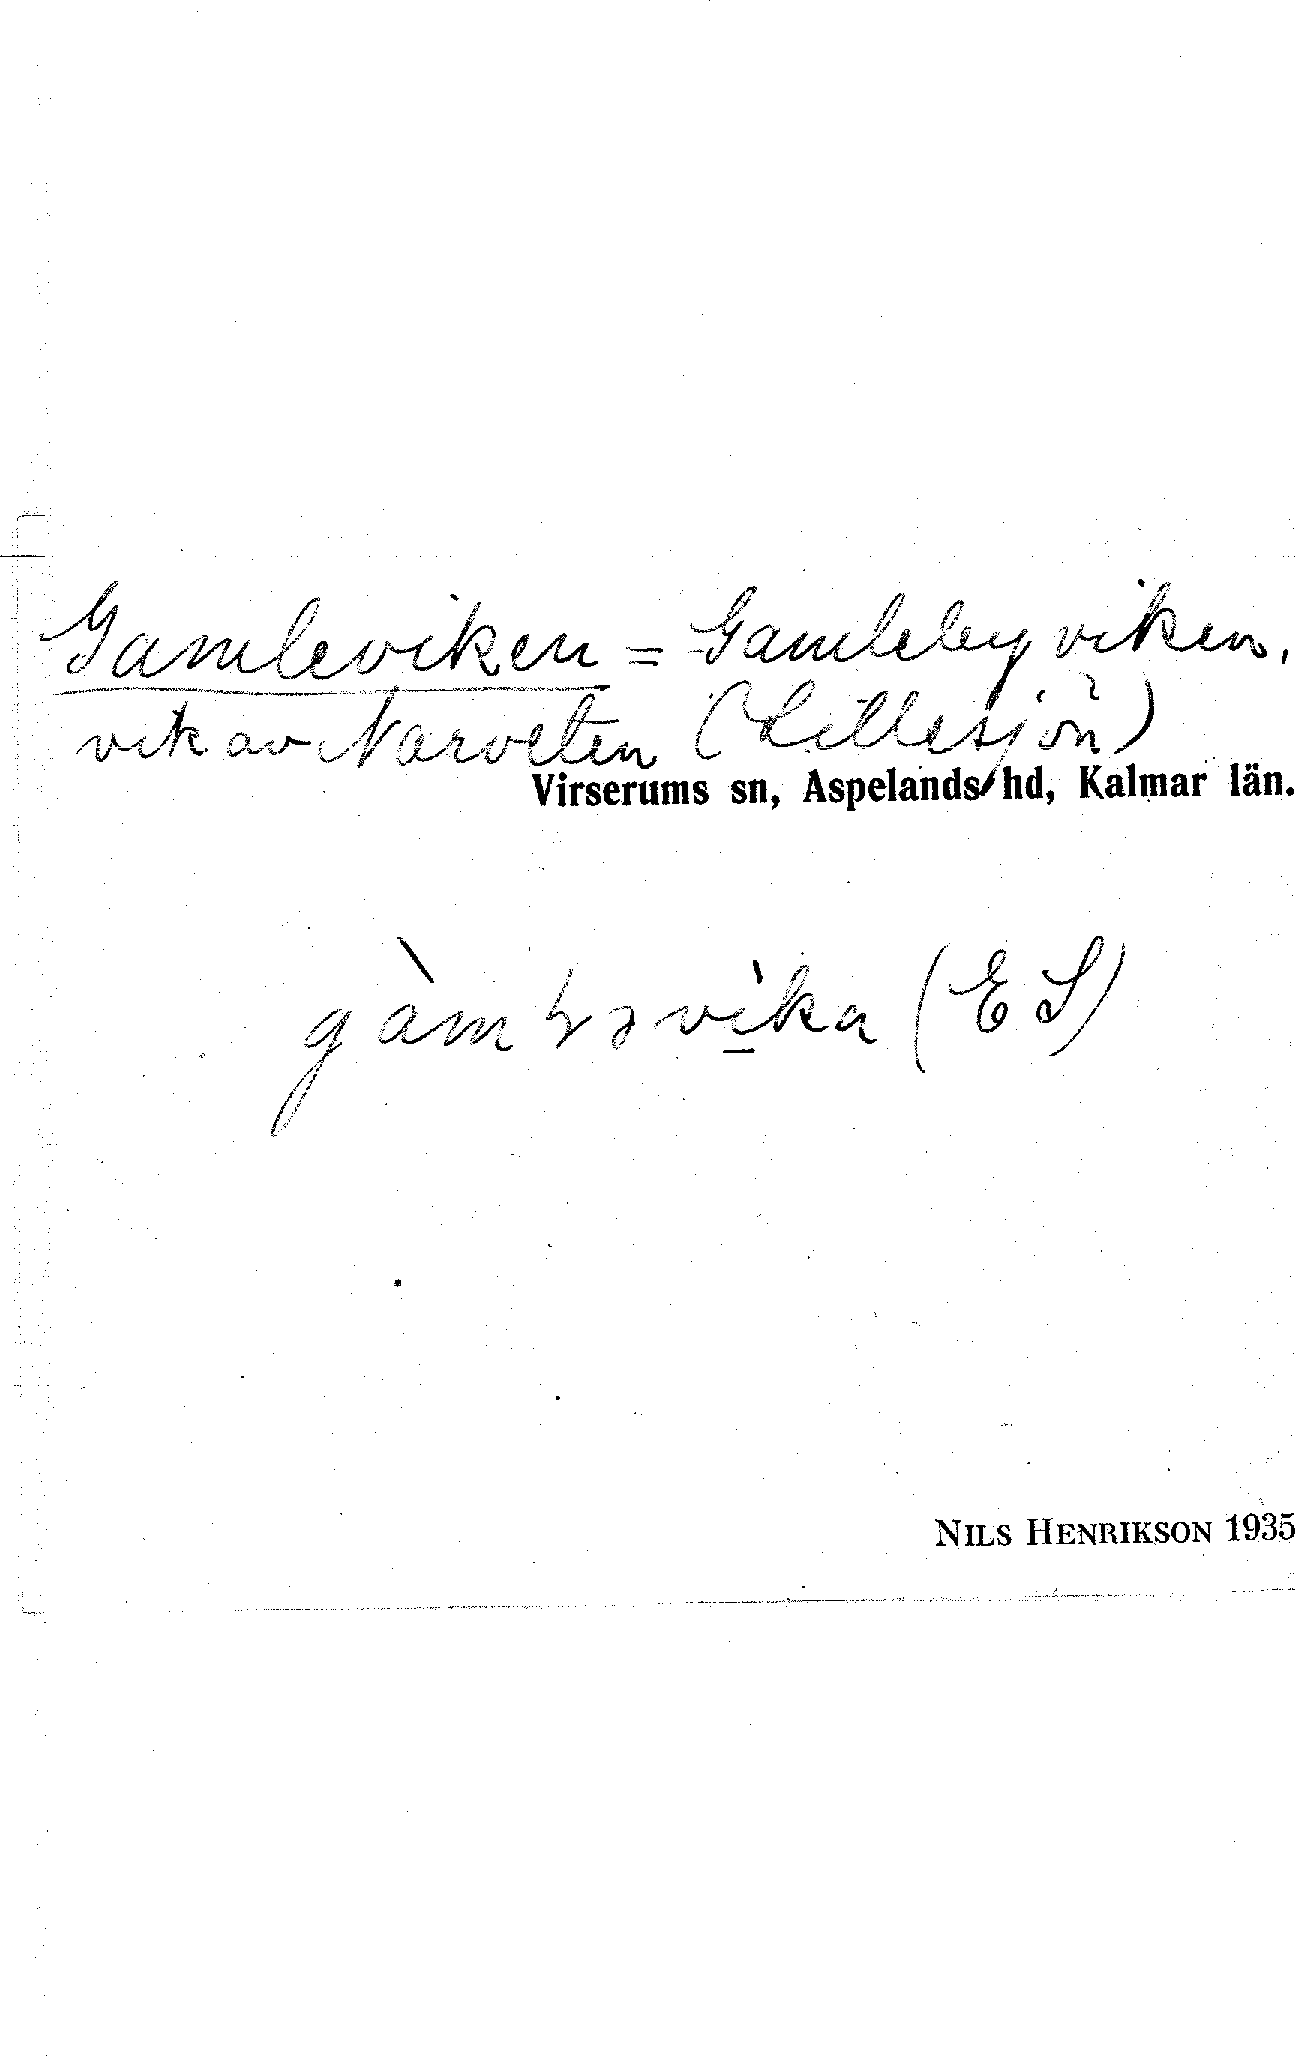 Gamleviken = Gamlebyviken,
vik av Narveten (Lillesjön)
Virserums sn, Aspelands hd, Kalmar län.
(E S)
NILS HENRIKSON 1935